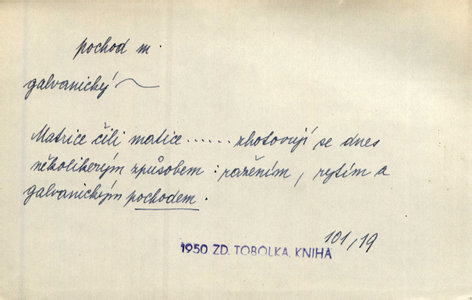 pochod m.
galvanický ~
Matrice čili matice ...... zhotovují se dnes
několikerým způsobem : ražením, rytím a
galvanickým pochodem.
101/19
1950 ZD. TOBOLKA, KNIHA